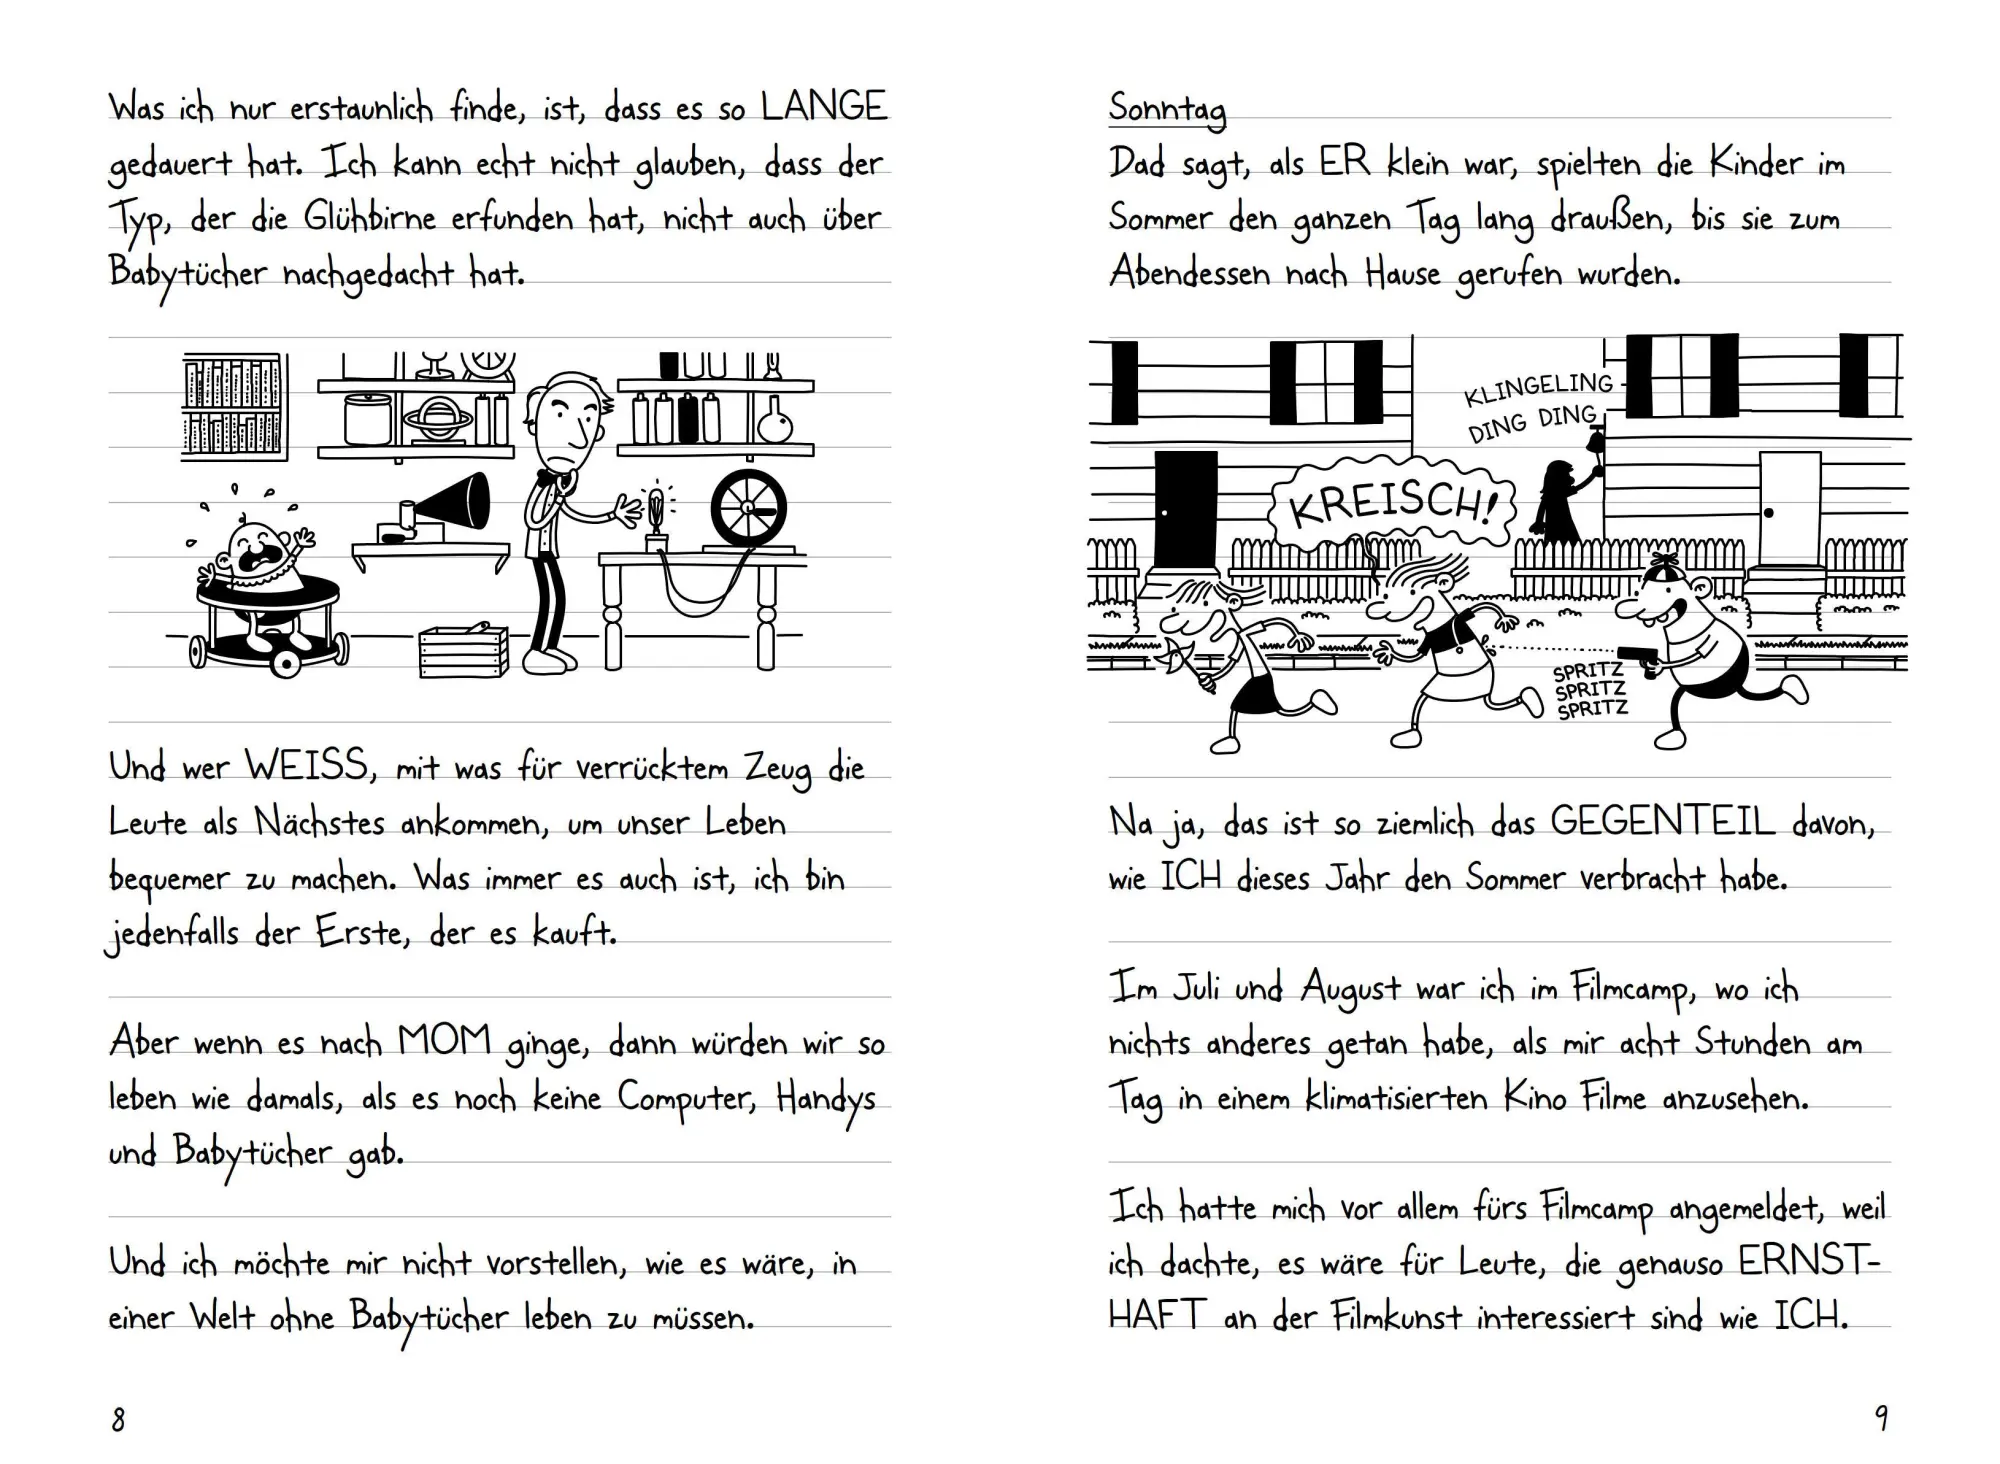 Was ich nur erstaunlich finde, ist, dass es so LANGE
gedauert hat. Ich kann echt nicht glauben, dass der
Typ, der die Glühbirne erfunden hat, nicht auch über
Babytücher nachgedacht hat.
Und wer WEISS, mit was für verrücktem Zeug die
Leute als Nächstes ankommen, um unser Leben
bequemer zu machen. Was immer es auch ist, ich bin
jedenfalls der Erste, der es kauft.
Aber wenn es nach MOM ginge, dann würden wir so
leben wie damals, als es noch keine Computer, Handys
und Babytücher gab.
Und ich möchte mir nicht vorstellen, wie es wäre, in
einer Welt ohne Babytücher leben zu müssen.
8
Sonntag
Dad sagt, als ER klein war, spielten die Kinder im
Sommer den ganzen Tag lang draußen, bis sie zum
Abendessen nach Hause gerufen wurden.
KLINGELING
DING DING
KREISCH!
SPRITZ
SPRITZ
SPRITZ
Na ja, das ist so ziemlich das GEGENTEIL davon,
wie ICH dieses Jahr den Sommer verbracht habe.
Im Juli und August war ich im Filmcamp, wo ich
nichts anderes getan habe, als mir acht Stunden am
Tag in einem klimatisierten Kino Filme anzusehen.
Ich hatte mich vor allem fürs Filmcamp angemeldet, weil
ich dachte, es wäre für Leute, die genauso ERNST-
HAFT an der Filmkunst interessiert sind wie ICH.
9